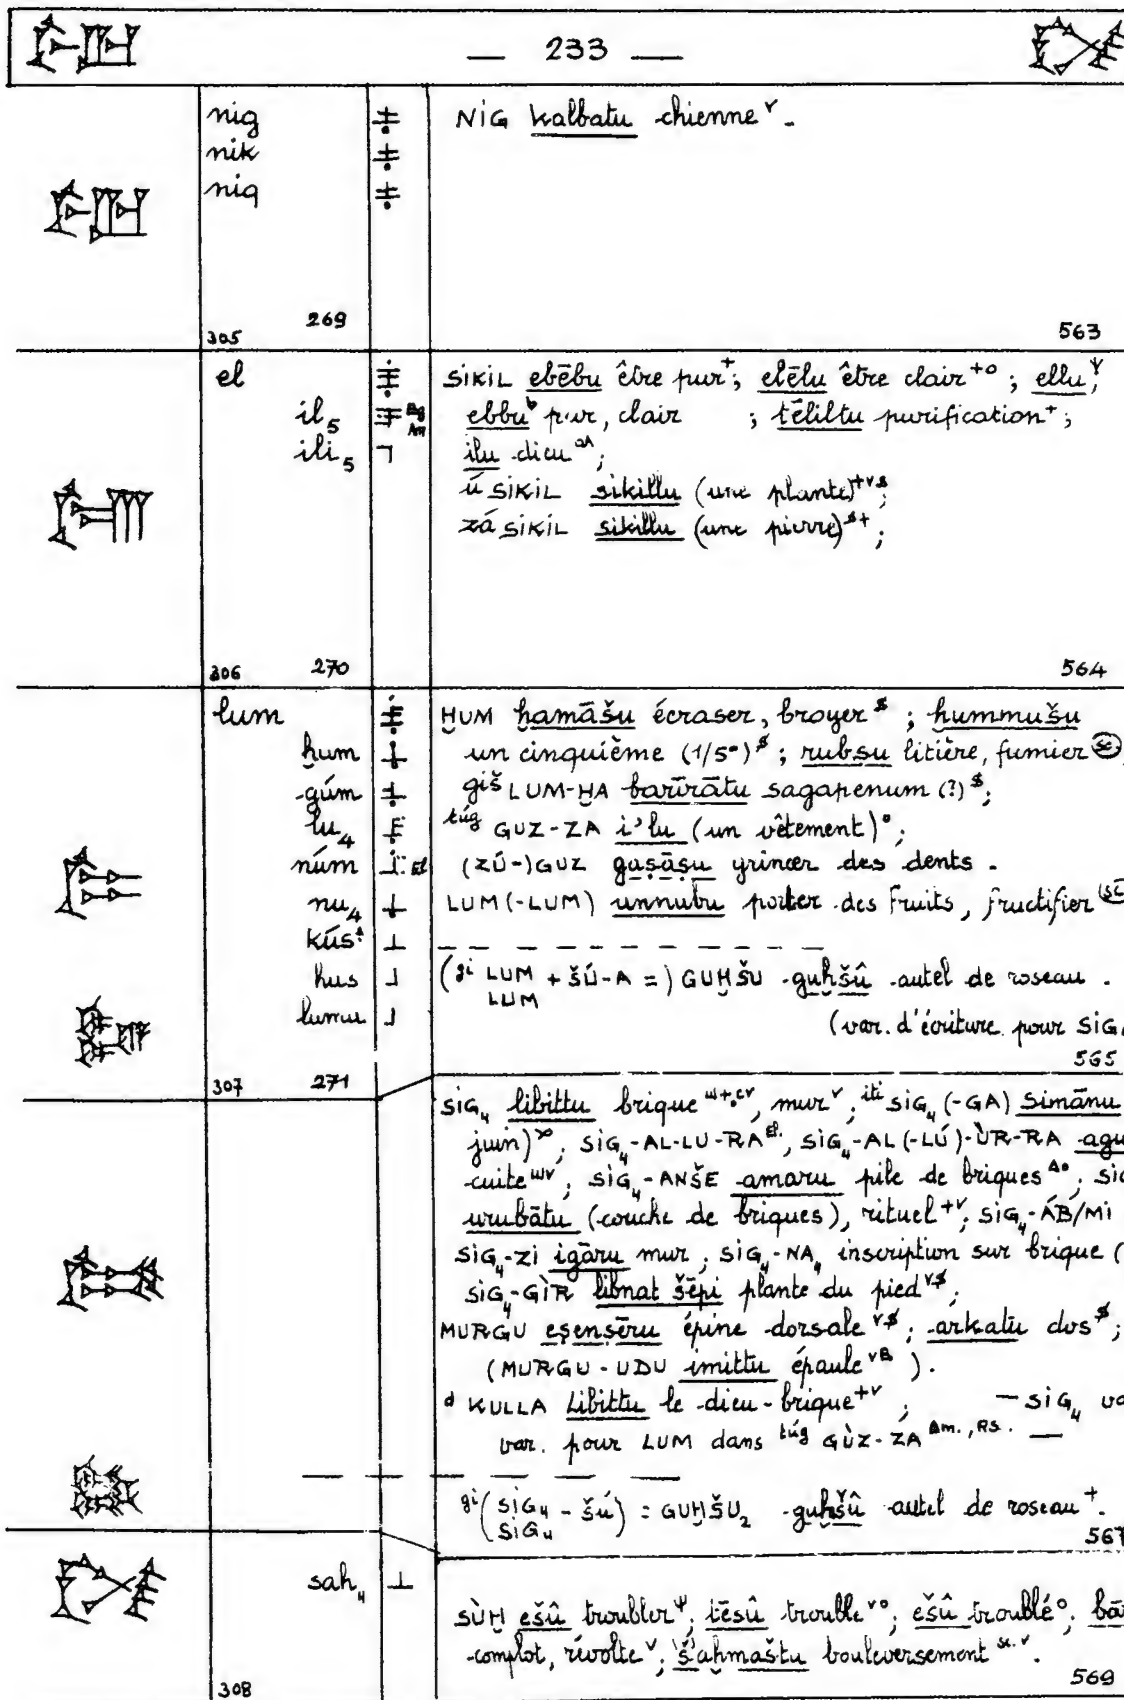 — 233 —
nig NIG kalbatu chienne ᵛ.
nik
niq
305 269 563
el SIKIL ebēbu être pur⁺; elēlu être clair⁺ᵒ; ellu,
il₅ ebbu pur, clair ; tēliltu purification⁺;
ili₅ ilu dieu;
ú SIKIL sikillu (une plante)
zá SIKIL sikillu (une pierre);
306 270 564
lum ḪUM ḫamāšu écraser, broyer $; ḫummušu
ḫum un cinquième (1/5ᵉ) $; rubṣu litière, fumier
gúm giš LUM-ḪA barīrātu sagapenum (?) $;
lu₄ túg GUZ-ZA i'lu (un vêtement)°;
núm (ZÚ-)GUZ gaṣāṣu grincer des dents.
nu₄ LUM(-LUM) unnubu porter des fruits, fructifier
kús
hus (gi LUM + ŠÚ-A =) GUḪŠU guḫšû autel de roseau.
LUM
lumu (var. d'écriture pour SIG₄
565
307 271
SIG₄ libittu brique, mur ᵛ; iti SIG₄ (-GA) Simānu
juin); SIG₄-AL-LU-RA, SIG₄-AL(-LÚ)-ÙR-RA agu
cuite; SIG₄-ANŠE amaru pile de briques;
urubātu (couche de briques), rituel⁺ᵛ; SIG₄-ÁB/MI
SIG₄-ZI igāru mur; SIG₄-NA₄ inscription sur brique (
SIG₄-GÌR libnat šēpi plante du pied ᵛ$;
MURGU eṣenṣēru épine dorsale ᵛ$; arkatu dos $;
(MURGU-UDU imittu épaule).
d KULLA Libittu le dieu-brique⁺ᵛ; — SIG₄
var. pour LUM dans túg GÙZ-ZA Am., RS. —
gi (SIG₄ - ŠÚ) = GUḪŠU₂ guḫšû autel de roseau⁺.
SIG₄
567
sah₄ SÙḪ ešû troubler; tēšû trouble ᵛᵒ; ešû troublé°;
complot, révolte ᵛ; šaḫmaštu bouleversement.
308 569